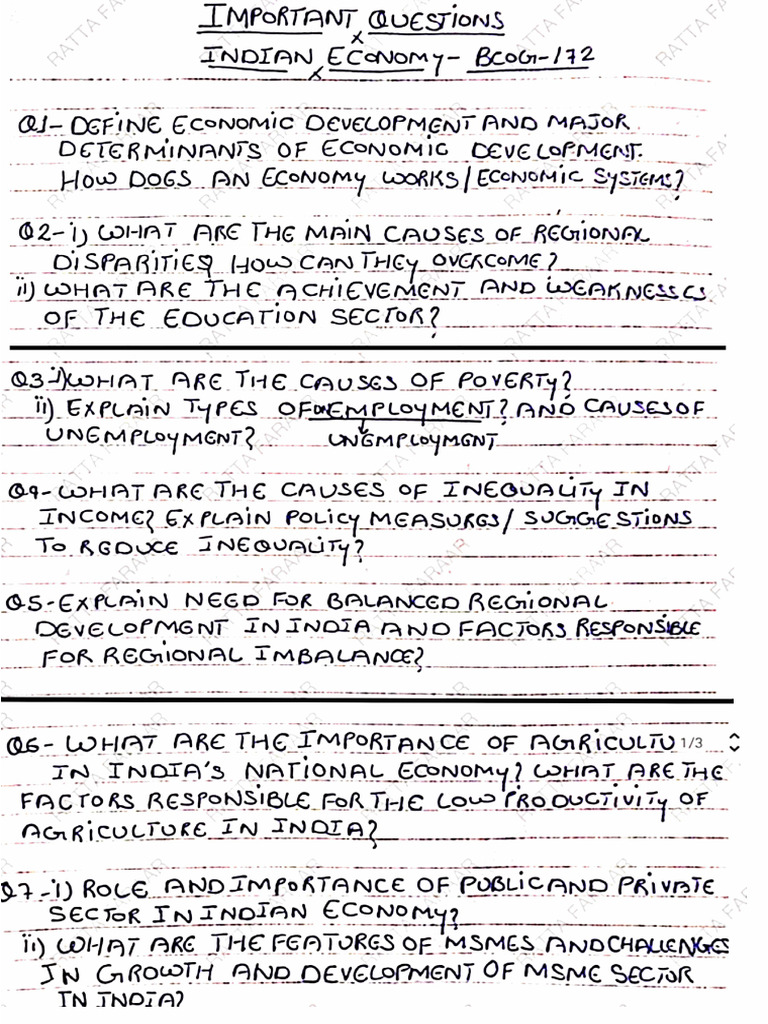 IMPORTANT QUESTIONS
INDIAN ECONOMY- BCOG-172
Q1- DEFINE ECONOMIC DEVELOPMENT AND MAJOR
DETERMINANTS OF ECONOMIC DEVELOPMENT.
HOW DOES AN ECONOMY WORKS/ECONOMIC SYSTEMS?
Q2- i) WHAT ARE THE MAIN CAUSES OF REGIONAL
DISPARITIES? HOW CAN THEY OVERCOME?
ii) WHAT ARE THE ACHIEVEMENT AND WEAKNESSES
OF THE EDUCATION SECTOR?
Q3-i) WHAT ARE THE CAUSES OF POVERTY?
ii) EXPLAIN TYPES OF UNEMPLOYMENT? AND CAUSES OF
UNEMPLOYMENT? UNEMPLOYMENT
Q4- WHAT ARE THE CAUSES OF INEQUALITY IN
INCOME? EXPLAIN POLICY MEASURES/ SUGGESTIONS
TO REDUCE INEQUALITY?
Q5- EXPLAIN NEED FOR BALANCED REGIONAL
DEVELOPMENT IN INDIA AND FACTORS RESPONSIBLE
FOR REGIONAL IMBALANCE?
Q6- WHAT ARE THE IMPORTANCE OF AGRICULTU 1/3
IN INDIA'S NATIONAL ECONOMY? WHAT ARE THE
FACTORS RESPONSIBLE FOR THE LOW PRODUCTIVITY OF
AGRICULTURE IN INDIA?
Q7-i) ROLE AND IMPORTANCE OF PUBLIC AND PRIVATE
SECTOR IN INDIAN ECONOMY?
ii) WHAT ARE THE FEATURES OF MSMES AND CHALLENGES
IN GROWTH AND DEVELOPMENT OF MSME SECTOR
IN INDIA?
RATTA FARAAR